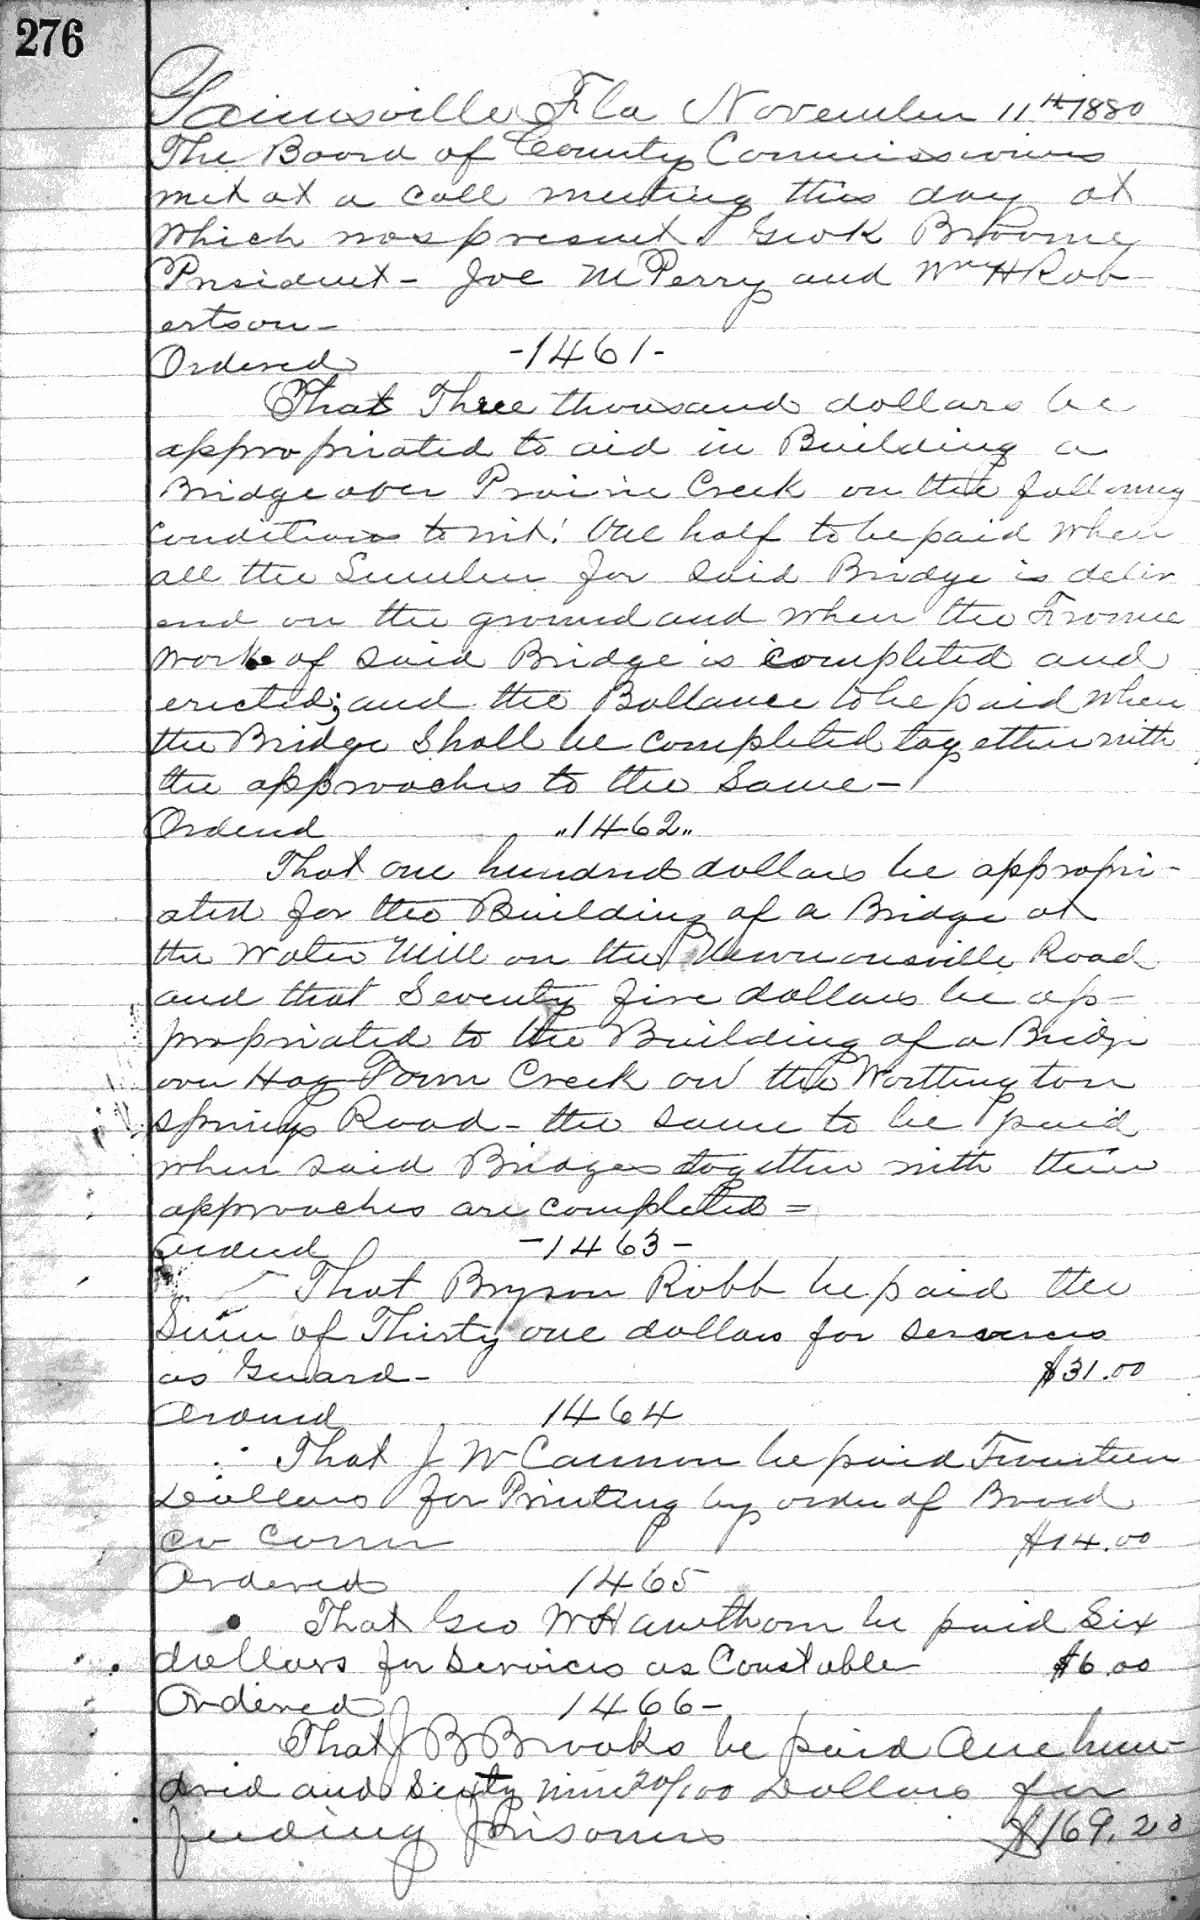 276
Gainesville Fla November 11th 1880
The Board of County Commissioners
met at a call meeting this day at
which was present. Geo K Broome
President - Joe M Perry and Wm H Rob-
ertson -
Ordered -1461-
That Three thousand dollars be
appropriated to aid in Building a
Bridge over Prairie Creek on the following
conditions to wit: One half to be paid when
all the Lumber for said Bridge is deliv
ered on the ground and when the Frame
work of said Bridge is completed and
erected; and the Ballance to be paid when
the Bridge Shall be completed together with
the approaches to the Same -
Ordered "1462"
That one hundred dollars be appropri-
ated for the Building of a Bridge at
the Water Mill on the Newnansville Road
and that Seventy five dollars be ap-
propriated to the Building of a Bridge
over Hog Town Creek on the Worthington
Springs Road - the same to be paid
when said Bridges together with their
approaches are completed =
Ordered -1463-
That Bryson Robb be paid the
Sum of Thirty one dollars for services
as Guard - $31.00
Ordered 1464
That J W Cannon be paid Fourteen
Dollars for Printing by order of Board
Co Com $14.00
Ordered 1465
That Geo W Hawthorn be paid Six
dollars for Services as Constable $6.00
Ordered 1466-
That J B Brooks be paid One hun-
dred and Sixty nine 20/100 Dollars for
feeding Prisoners $169.20